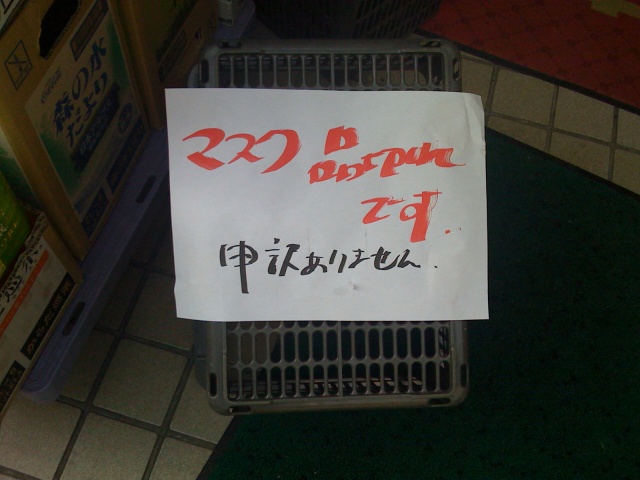 マスク 品切れ
です.
申訳ありません.
森の水
だより